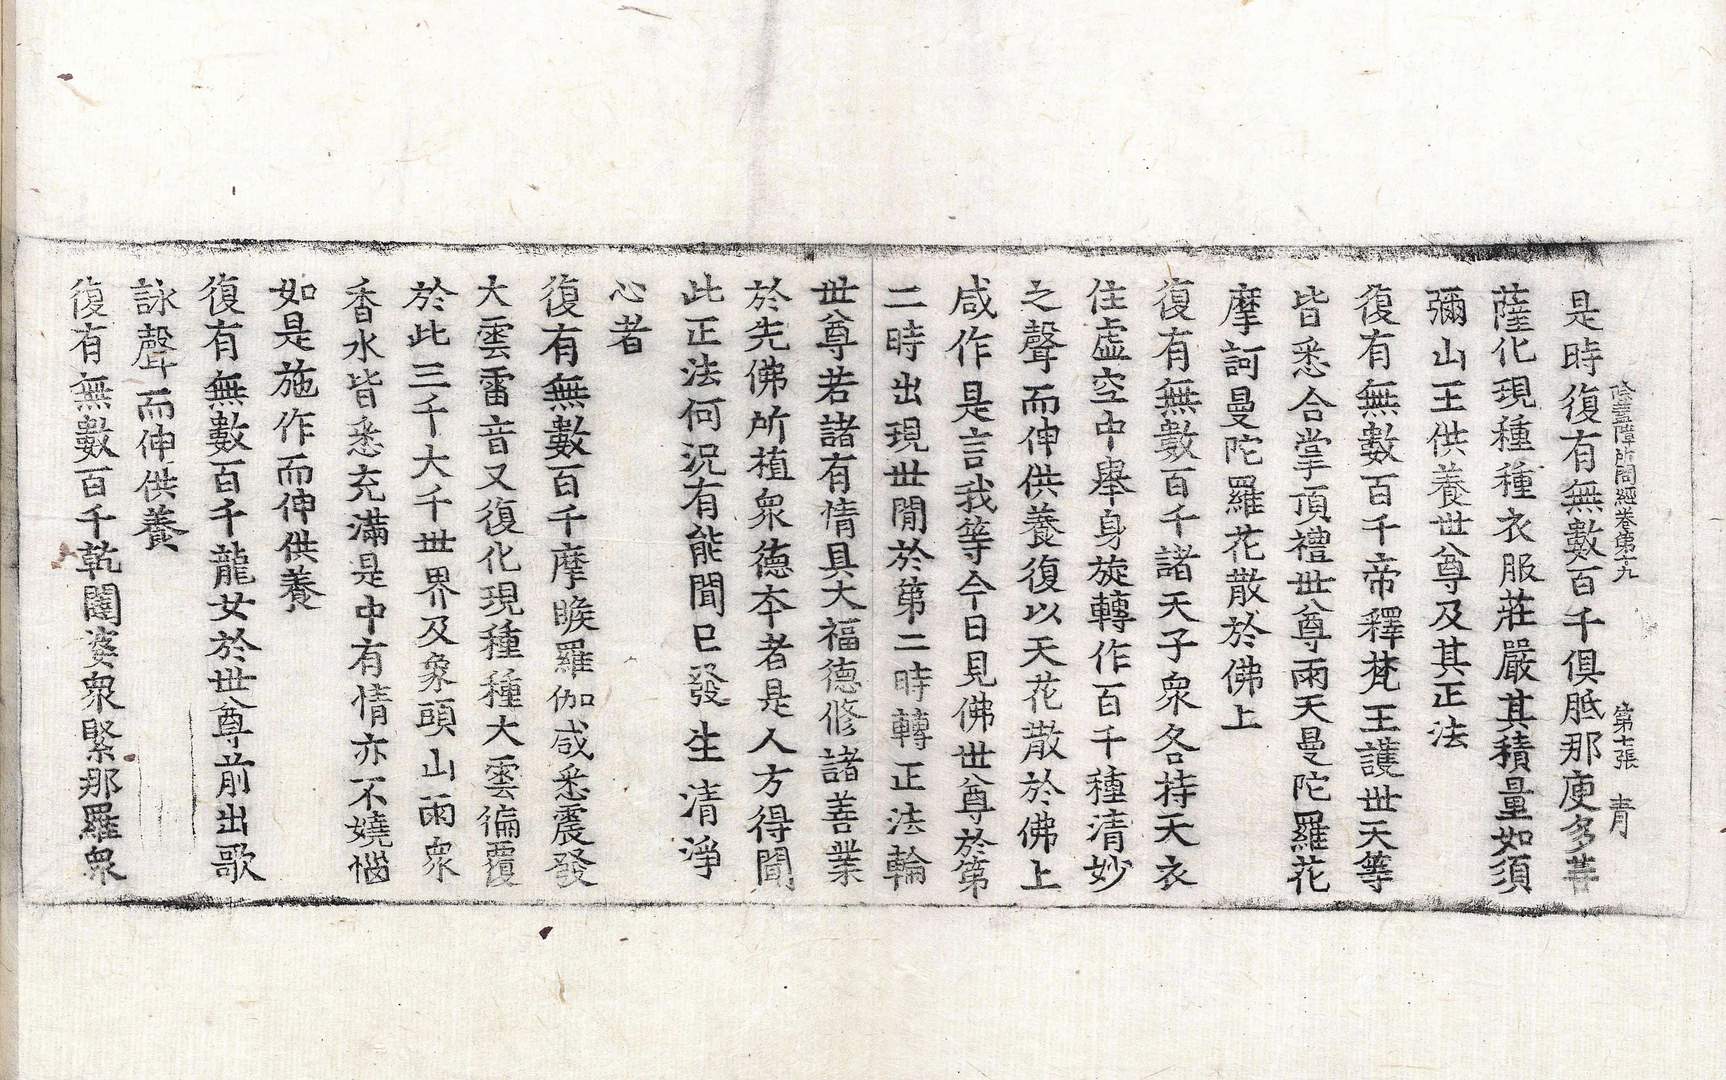 除蓋障所問經卷第九 第七張 青
是時復有無數百千俱胝那庾多菩
薩化現種種衣服莊嚴其積量如須
彌山王供養世尊及其正法
復有無數百千帝釋梵王護世天等
皆悉合掌頂禮世尊雨天曼陀羅花
摩訶曼陀羅花散於佛上
復有無數百千諸天子衆各持天衣
住虛空中舉身旋轉作百千種清妙
之聲而伸供養復以天花散於佛上
咸作是言我等今日見佛世尊於第
二時出現世閒於第二時轉正法輪
世尊若諸有情具大福德修諸善業
於先佛所植衆德夲者是人方得聞
此正法何況有能聞已發生清淨
心者
復有無數百千摩睺羅伽咸悉震發
大雲雷音又復化現種種大雲徧覆
於此三千大千世界及象頭山雨衆
香水皆悉充滿是中有情亦不嬈惱
如是施作而伸供養
復有無數百千龍女於世尊前出歌
詠聲而伸供養
復有無數百千乾闥婆衆緊那羅衆